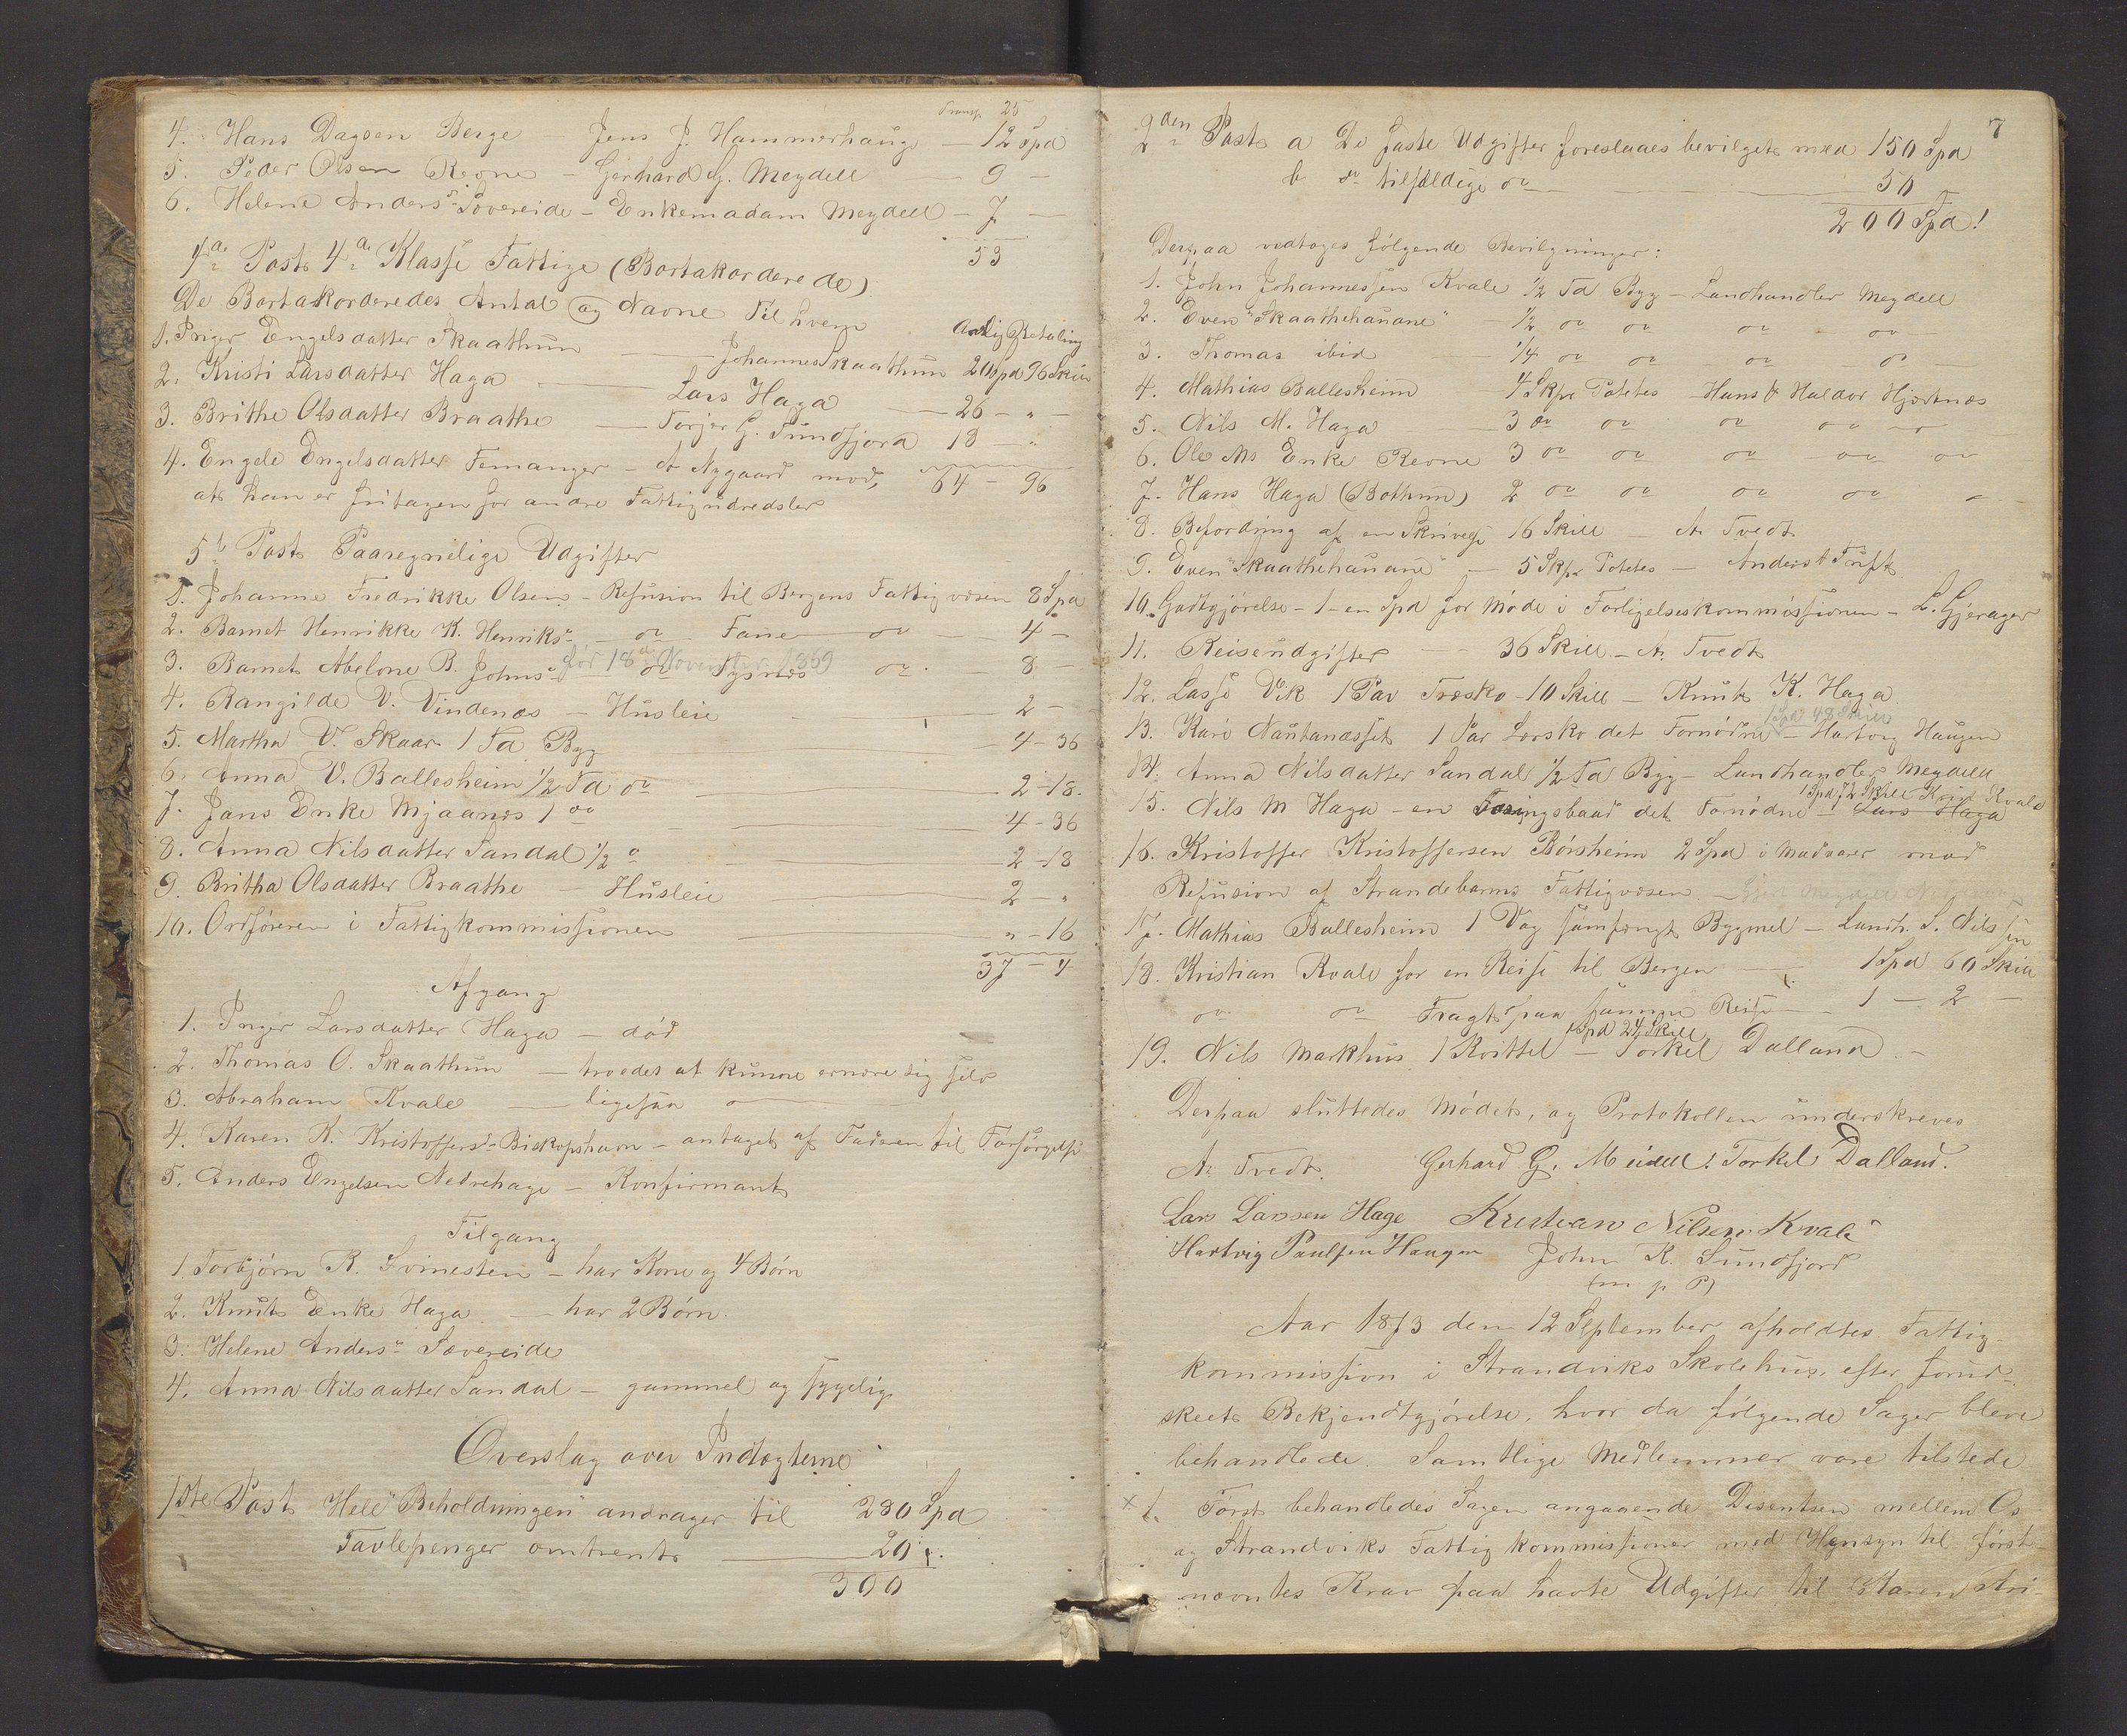 Transp. 25
4. Hans Dagsen Berge - Jens J. Hammerhaug - 12 Spd
5. Peder Olsen Revne - Gerhard G. Meydell - 9 -
6. Helene Anders Sævereide - Enkemadam Meydell - 7 -
53
4de Post 4de Klasse Fattige (Bortakorderede)
De Bortakorderedes Antal og Navne Til hvem Aarlig Betaling
1. Inger Engelsdatter Skaathun - Johannes Skaathun 20 Spd 96 Skill
2. Kristi Larsdatter Haga - Lars Haga - 26 - " -
3. Brithe Olsdatter Braathe - Torjer G. Sundfjord 18 - "
4. Engele Engelsdatter Femanger - A Nygaard mod, 64 - 96
at han er fritagen for andre Fattigudredsler
5te Post Paaregnelige Udgifter
1. Johanne Fredrikke Olsen - Refusion til Bergens Fattigvæsen 8 Spd
2. Barnet Henrikke K. Henriks - do Fane do - 4 -
for 18de November 1869
3. Barnet Abelone B. Johns - do Tysnes do - 8 -
4. Rangilde V. Vindenes - Husleie - 2 -
5. Martha V. Skaar 1 Td Byg - 4 - 36
6. Anna V. Ballesheim 1/2 Td do - 2 - 18.
7. Jans Enke Mjaanes 1 do - 4 - 36
8. Anna Nilsdatter Sandal 1/2 " - 2 - 18
9. Britha Olsdatter Braathe - Husleie - 2 - "
10. Ordføreren i Fattigkommissionen - " - 16
37 - 4
Afgang
1. Inger Larsdatter Haga - død
2. Thomas O. Skaathun - troedes at kunne ernære sig selv
3. Abraham Kvale - ligesaa -
4. Karen K. Kristoffersd. Biskopshavn - antaget af Faderen til Forsørgelse
5. Anders Engelsen Nedrehage - Konfirmant
Tilgang
1. Torbjørn R. Svinesten - har Kone og 4 Børn
2. Knuts Enke Haga - har 2 Børn.
3. Helene Anders Sævereide
4. Anna Nilsdatter Sandal - gammel og sygelig
Overslag over Indtægterne
1ste Post Hele "Beholdningen" andrager til 280 Spd
Tavlepenger omtrent - 20 "
300
7
2den Post a De faste Udgifter foreslaaes bevilget med 150 Spd
b do tilfældige do - 50 -
200 Spd!
Derpaa vedtoges følgende Bevilgninger:
1. John Johannessen Kvale 1/2 Td Byg - Landhandler Meydell
2. Even "Skaathehauane" - 1/2 do do do - do -
3. Thomas ibid - 1/4 do do do - do -
4. Mathias Ballesheim - 4 Skpr Potetes - Hans & Haldor Hjertnæs
5. Nils M. Haga - 3 do do do do do
6. Ole Ms Enke Revne 3 do do do do do
7. Hans Haga (Bothun) 2 do do do do -
8. Befordring af en Skrivelse 16 Skill - A. Tvedt
9. Even "Skaathehauane" - 5 Skpr Potetes - Anders Tuft
10. Godtgjørelse - 1 - en Spd for Møde i Forligelseskommissionen - L. Gjerager
11. Reiseudgifter - 36 Skill - A. Tvedt
12. Lasse Vik 1 Par Træsko - 10 Skill - Knut K. Haga
1 Spd 48 Skill
13. Kari Nautanæsset 1 Par Lærsko det Fornødne - Hartvig Haugen
14. Anna Nilsdatter Sandal 1/2 Td Byg - Landhandler Meydell
1 Spd 72 Skill Krist Kvale
15. Nils M Haga - en Færingsbaad det Fornødne - Lars Haga
16. Kristoffer Kristoffersen Børsheim 2 Spd i Madvarer mod
Refusion af Strandebarms Fattigvæsen -
17. Mathias Ballesheim 1 Vog sampengt Bygmel - Landh. S. Nilssen
18. Kristian Kvale for en Reise til Bergen - 1 Spd 60 Skill
do do Fragt paa samme Reise - 1 - 2 -
1 Spd 24 Skill
19. Nils Markhus 1 Kvittel - Torkel Dalland. -
Derpaa sluttedes Mødet, og Protokollen underskreves
A. Tvedt. Gerhard G. Meidell. Torkel Dalland.
Lars Larssen Hage Kristian Nilsen Kvale
Hartvig Paulsen Haugen John K. Sundfjord
(m p P)
Aar 1873 den 12 September afholdtes Fattig-
kommission i Strandviks Skolehus, efter forud-
skeet Bekjendtgjørelse, hvor da følgende Sager bleve
behandlede. Samtlige Medlemmer vare tilstede
x 1. Først behandledes Sagen angaaende Disentsen mellem Os
og Strandviks Fattigkommissioner med Hensyn til først-
nævntes Krav paa havte Udgifter til Karen Kri-